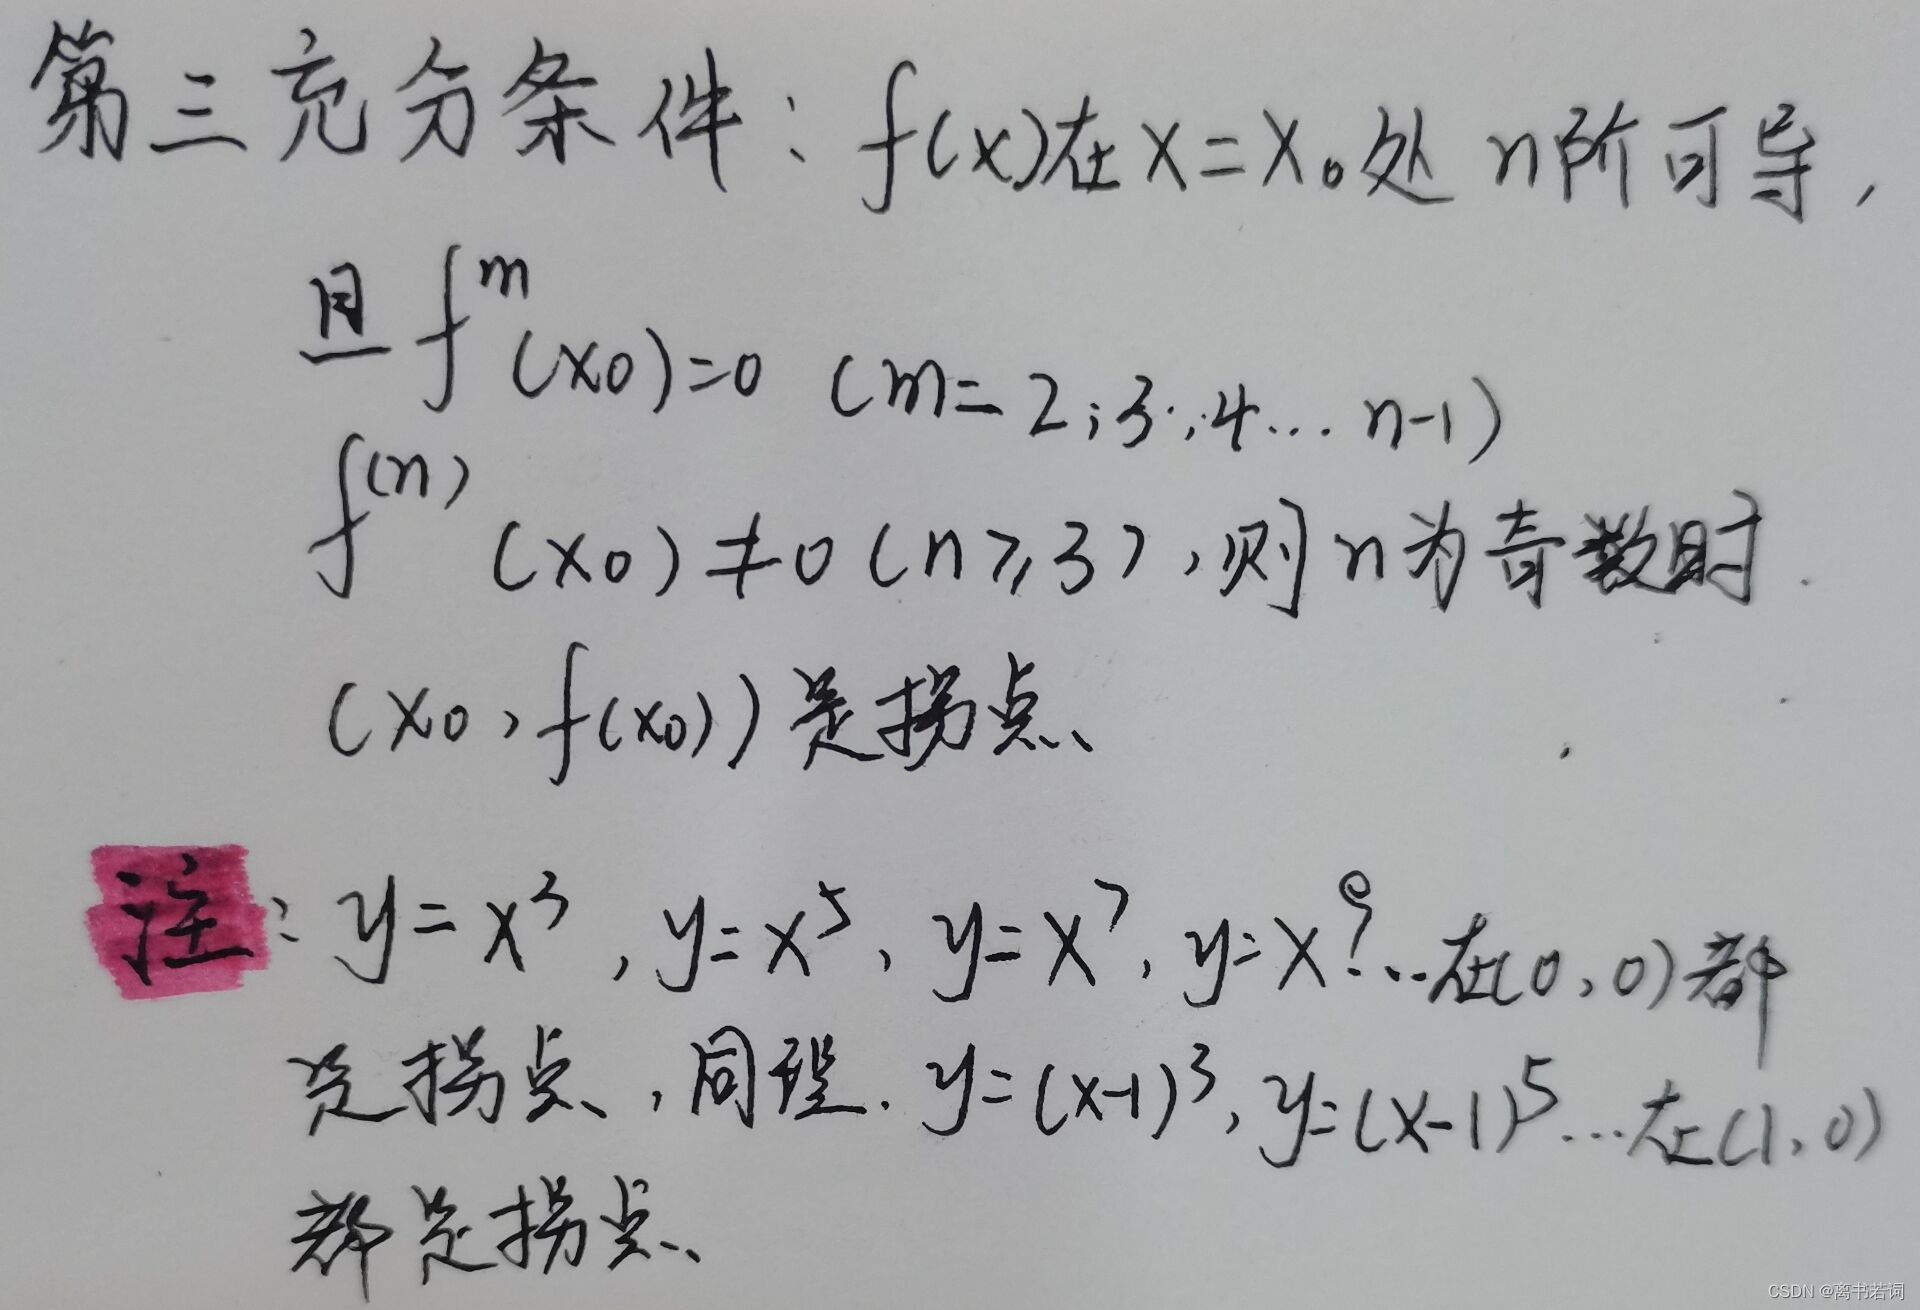 第三充分条件：f(x)在x=x₀处n阶可导，
且f^m(x₀)=0（m=2;3;4…n-1）
f^(n)(x₀)≠0（n≥3），则n为奇数时
(x₀，f(x₀))是拐点、
注：y=x³，y=x⁵、y=x⁷，y=x⁹…在(0，0)都
是拐点，同理．y=(x-1)³，y=(x-1)⁵…在(1，0)
都是拐点、
CSDN @离书若词